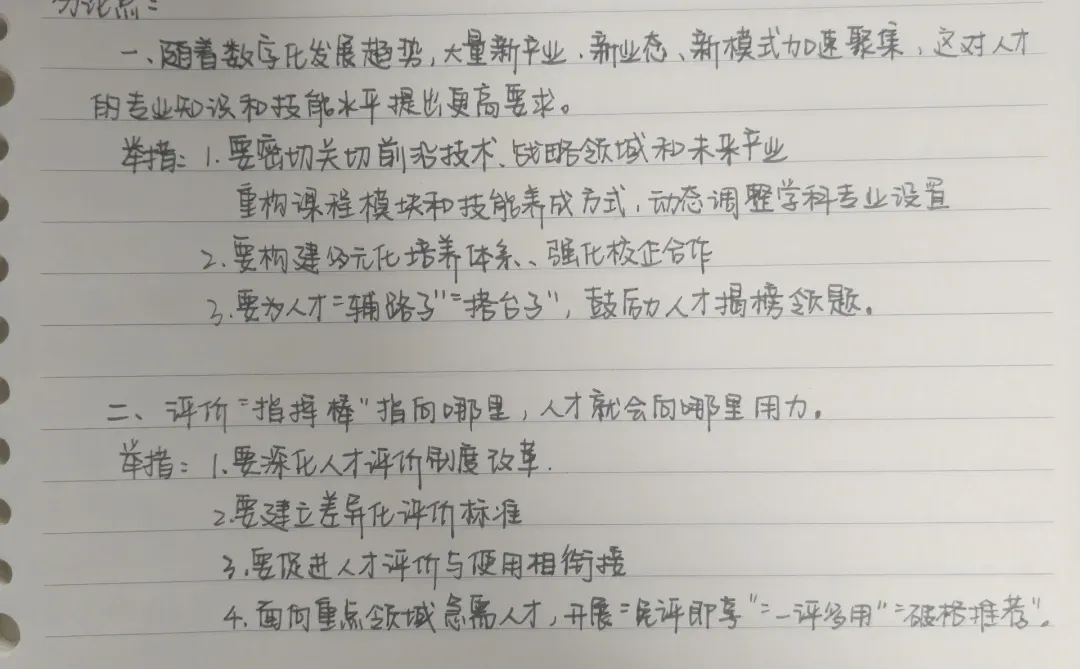 分论点：
一、随着数字化发展趋势，大量新产业、新业态、新模式加速聚集，这对人才
的专业知识和技能水平提出更高要求。
举措：1.要密切关切前沿技术、战略领域和未来产业
重构课程模块和技能养成方式，动态调整学科专业设置
2.要构建多元化培养体系、强化校企合作
3.要为人才“辅路子”“搭台子”，鼓励人才揭榜领题。
二、评价“指挥棒”指向哪里，人才就会向哪里用力。
举措：1.要深化人才评价制度改革.
2.要建立差异化评价标准
3.要促进人才评价与使用相衔接
4.面向重点领域急需人才，开展“免评即享”“一评多用”“破格推荐”。